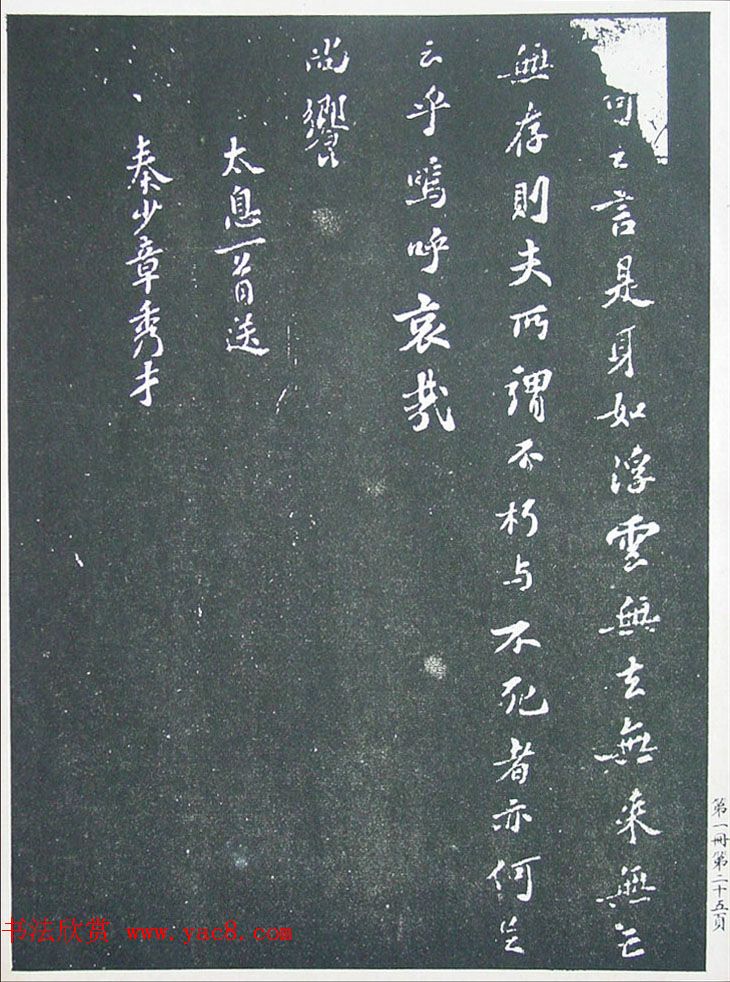 之言是身如浮雲無去無來無亡
無存則夫所謂不朽与不死者亦何足
云乎嗚呼哀哉
尚饗
太息一首送
秦少章秀才
第一冊第二十五頁
书法欣赏 www.yac8.com